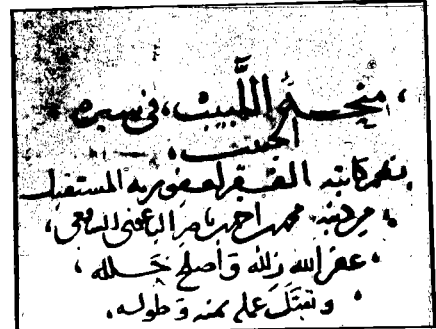 منحة اللبيب، في سيرة
الحبيب،
نظم كاتبه الفقير لعفو ربه المستقيل
من ذنبه محمد بن احمد بن ناصر الباعوني الشافعي،
غفر الله زلله وأصلح خلله،
وتقبل عمله بمنه وطوله.